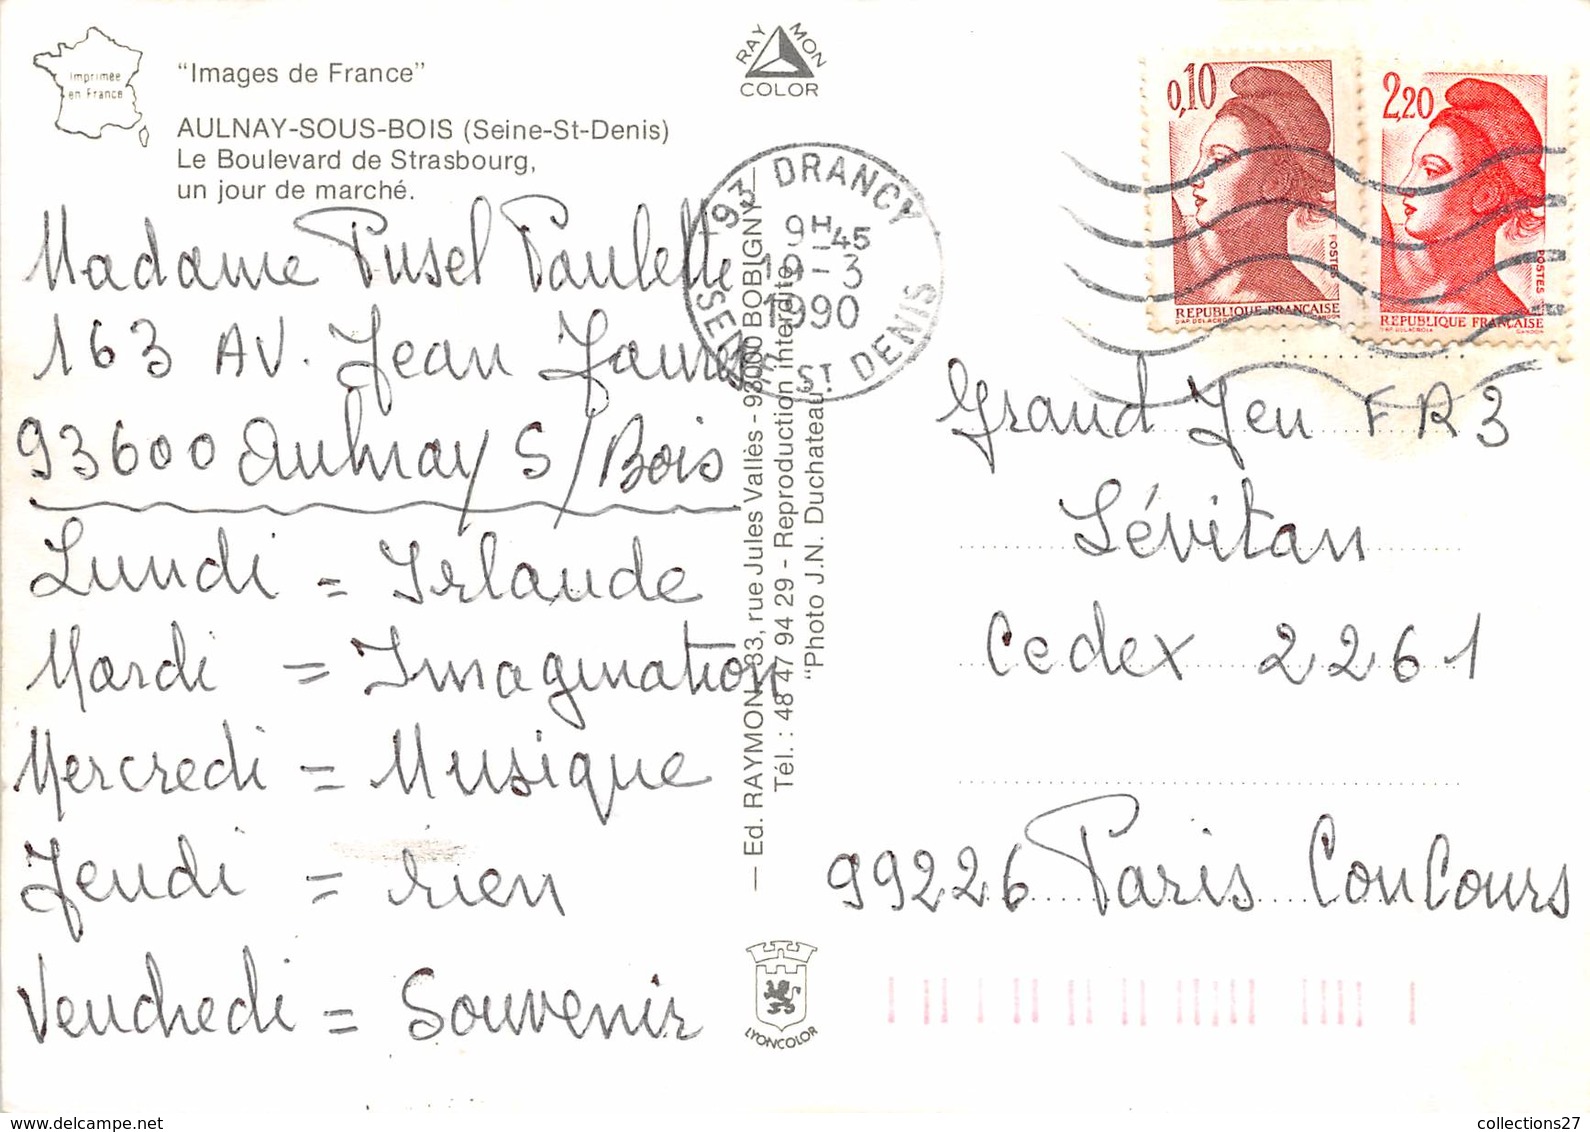 Imprimée
en France
"Images de France"
AULNAY-SOUS-BOIS (Seine-St-Denis)
Le Boulevard de Strasbourg,
un jour de marché.
RAYMON
COLOR
Madame Pusel Paulette
163 AV. Jean Jaurès
93600 Aulnay S/Bois
Lundi = Irlande
Mardi = Imagination
Mercredi = Musique
Jeudi = rien
Vendredi = Souvenir
93 DRANCY
9H45
19-3
1990
SEINE ST DENIS
— Ed. RAYMON, 33, rue Jules Vallès - 93000 BOBIGNY
Tél. : 48 47 94 29 - Reproduction interdite
"Photo J.N. Duchateau"
LYONCOLOR
0,10
POSTES
REPUBLIQUE FRANÇAISE
2,20
POSTES
REPUBLIQUE FRANÇAISE
Grand Jeu FR3
Lévitan
Cedex 2261
99226 Paris Concours
collections27